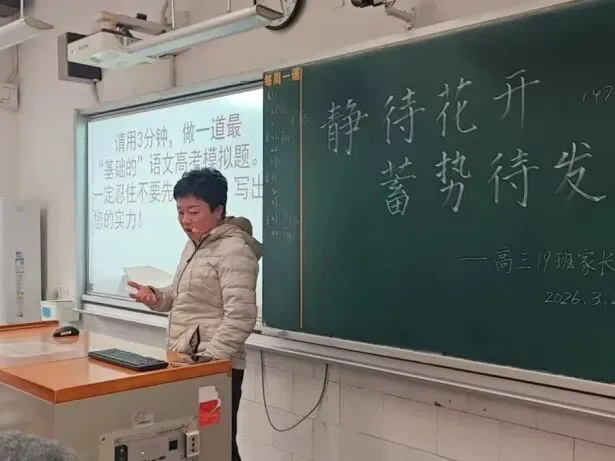 请用3分钟，做一道最
“基础的”语文高考模拟题。
一定忍住不要先
写出
您的实力！
每周一语
静待花开
蓄势待发
——高三19班家长
2026.3.